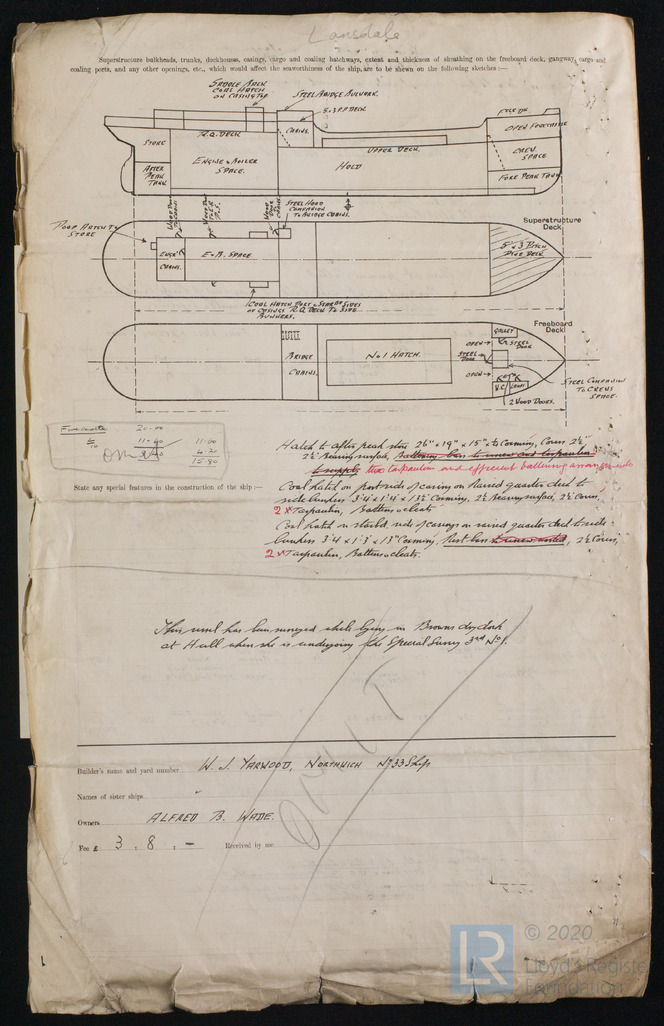 Lansdale
Superstructure bulkheads, trunks, deckhouses, casings, cargo and coaling hatchways, extent and thickness of sheathing on the freeboard deck, gangway, cargo and
coaling ports, and any other openings, etc., which would affect the seaworthiness of the ship, are to be shewn on the following sketches :—
SADDLE BACK
COAL HATCH
ON CASING TOP
STEEL BRIDGE BULWORK.
5 x 3 P.P DECK
STORE
R.Q. DECK
CABINS.
UPPER DECK.
OPEN FORECASTLE
AFTER
PEAK
TANK
ENGINE & BOILER
SPACE.
HOLD
CREW
SPACE
FORE PEAK TANK
STEEL HOOD
COMPANION
TO BRIDGE CABINS.
POOP HATCH TO
STORE
ENGRS
CABINS.
E & B. SPACE
Superstructure
Deck
5" x 3 PITCH
PINE DECK
COAL HATCH PORT & STARBD SIDES
OF CASINGS R.Q. DECK TO SIDE
BUNKERS.
Freeboard
Deck
BRIDGE
CABINS.
No 1 HATCH.
GALLEY
OPEN
STEEL
DOOR
STEEL
DOOR
OPEN
W.C
LAMPS
2 WOOD DOORS.
STEEL COMPANION
TO CREWS
SPACE.
20.00
11.40
11.00
4.20
15.80
Hatch to after peak store 26" x 19" x 15" to Coaming, Covers 2½"
2½ Bearing surface, Battening bars to renew and tarpaulin
to supply two tarpaulins and efficient battening arrangements
Coal hatch on port side of casing on Raised quarter deck to
side bunkers 3'4 x 1'4 x 13½ Coaming, 2½ Bearing surface, 2½ Covers,
2 x Tarpaulin, Battens & cleats
State any special features in the construction of the ship :—
Coal hatch on starbd. side of casings on raised quarter deck to side
bunkers 3'4 x 1'3 x 13" Coaming, Rest bars to renew, 2½ Covers,
2 x Tarpaulin, Battens & cleats.
This vessel has been surveyed while lying in Browns dry dock
at Hull when she is undergoing the Special Survey 3rd No 1.
OMIT
Builder's name and yard number W. J. YARWOOD, NORTHWICH No 33 Ships
Names of sister ships
Owners ALFRED B. WADE.
Fee £ 3 : 8 : - Received by me
LR
© 2020
Lloyd's Register
Foundation